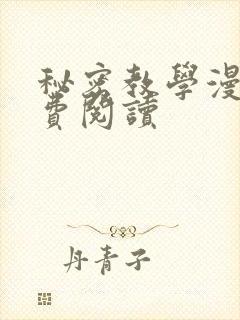 秘密教學漫
費閱讀
丹青子